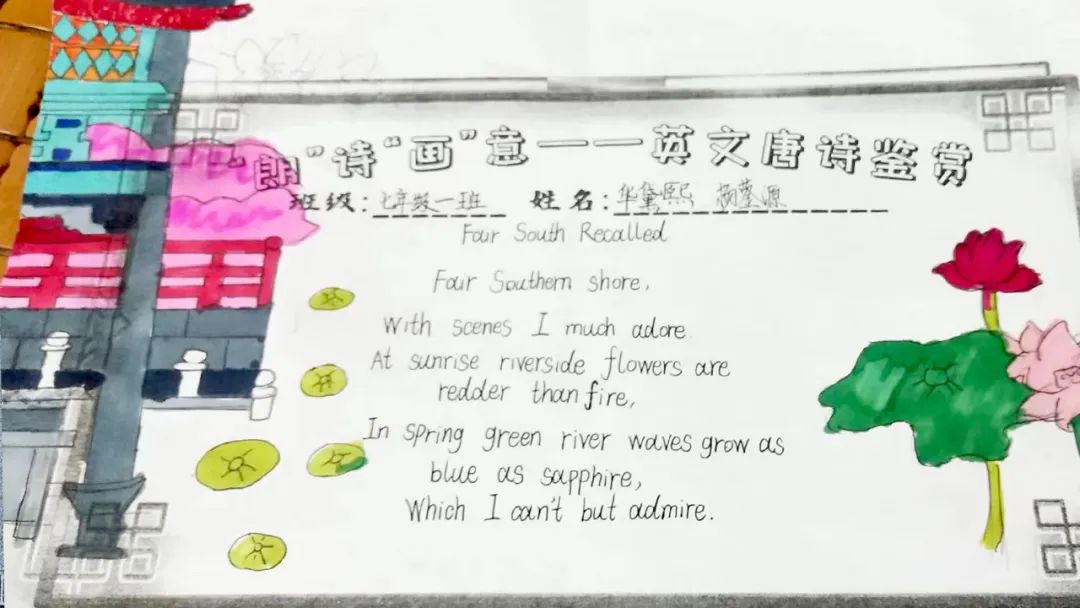 “朗”诗“画”意——英文唐诗鉴赏
班级:七年级一班 姓名:华黛熙 杨蓥源
Fair South Recalled
Fair Southern shore,
With scenes I much adore.
At sunrise riverside flowers are
redder than fire,
In spring green river waves grow as
blue as sapphire,
Which I can't but admire.